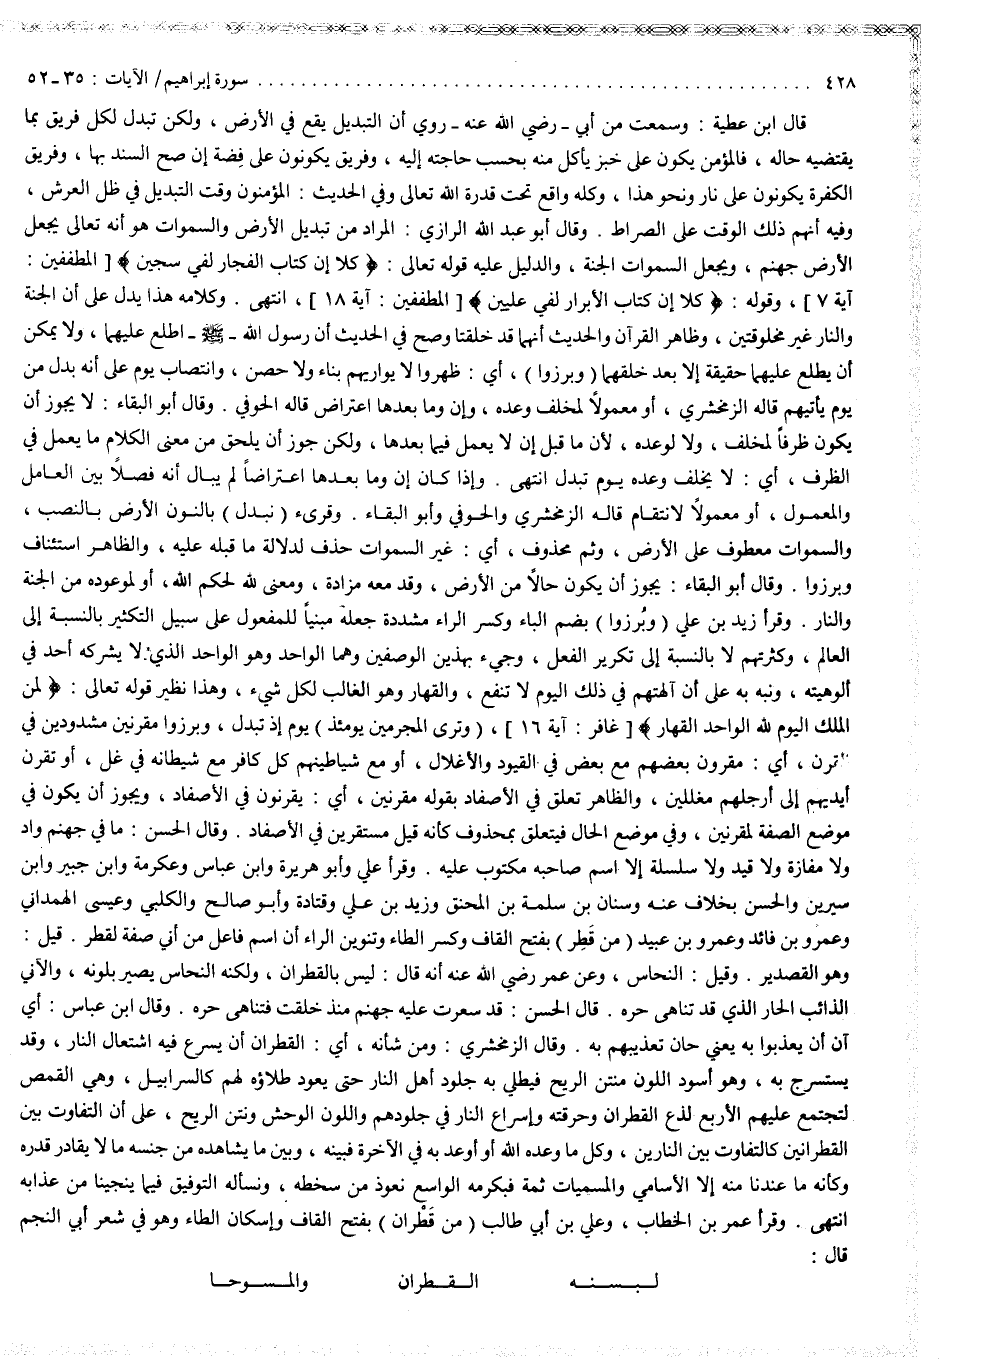 ٤٢٨ ............................................ سورة إبراهيم/ الآيات : ٣٥ـ٥٢
قال ابن عطية : وسمعت من أبي ـ رضي الله عنه ـ روي أن التبديل يقع في الأرض ، ولكن تبدل لكل فريق بما
يقتضيه حاله ، فالمؤمن يكون على خبز يأكل منه بحسب حاجته إليه ، وفريق يكونون على فِضة إن صح السند بها ، وفريق
الكفرة يكونون على نار ونحو هذا ، وكله واقع تحت قدرة الله تعالى وفي الحديث : المؤمنون وقت التبديل في ظل العرش ،
وفيه أنهم ذلك الوقت على الصراط . وقال أبو عبد الله الرازي : المراد من تبديل الأرض والسموات هو أنه تعالى يجعل
الأرض جهنم ، ويجعل السموات الجنة ، والدليل عليه قوله تعالى : ﴿ كلا إن كتاب الفجار لفي سجين ﴾ [ المطففين :
آية ٧ ] ، وقوله : ﴿ كلا إن كتاب الأبرار لفي عليين ﴾ [ المطففين : آية ١٨ ] ، انتهى . وكلامه هذا يدل على أن الجنة
والنار غير مخلوقتين ، وظاهر القرآن والحديث أنهما قد خلقتا وصح في الحديث أن رسول الله ـ ﷺ ـ اطلع عليهما ، ولا يمكن
أن يطلع عليهما حقيقة إلا بعد خلقهما ( وبرزوا ) ، أي : ظهروا لا يواريهم بناء ولا حصن ، وانتصاب يوم على أنه بدل من
يوم يأتيهم قاله الزمخشري ، أو معمولاً لمخلف وعده ، وإن وما بعدها اعتراض قاله الحوفي . وقال أبو البقاء : لا يجوز أن
يكون ظرفاً لمخلف ، ولا لوعده ، لأن ما قبل إن لا يعمل فيما بعدها ، ولكن جوز أن يلحق من معنى الكلام ما يعمل في
الظرف ، أي : لا يخلف وعده يوم تبدل انتهى . وإذا كان إن وما بعدها اعتراضاً لم يبال أنه فصلاً بين العامل
والمعمول ، أو معمولاً لانتقام قاله الزمخشري والحوفي وأبو البقاء . وقرىء ( نبدل ) بالنون الأرض بالنصب ،
والسموات معطوف على الأرض ، وثم محذوف ، أي : غير السموات حذف لدلالة ما قبله عليه ، والظاهر استئناف
وبرزوا . وقال أبو البقاء : يجوز أن يكون حالاً من الأرض ، وقد معه مزادة ، ومعنى لله لحكم الله ، أو لموعوده من الجنة
والنار . وقرأ زيد بن علي ( وبُرزوا ) بضم الباء وكسر الراء مشددة جعله مبنياً للمفعول على سبيل التكثير بالنسبة إلى
العالم ، وكثرتهم لا بالنسبة إلى تكرير الفعل ، وجيء بهذين الوصفين وهما الواحد وهو الواحد الذي لا يشركه أحد في
ألوهيته ، ونبه به على أن آلهتهم في ذلك اليوم لا تنفع ، والقهار وهو الغالب لكل شيء ، وهذا نظير قوله تعالى : ﴿ لمن
الملك اليوم لله الواحد القهار ﴾ [ غافر : آية ١٦ ] ، ( وترى المجرمين يومئذ ) يوم إذ تبدل ، وبرزوا مقرنين مشدودين في
ترن ، أي : مقرون بعضهم مع بعض في القيود والأغلال ، أو مع شياطينهم كل كافر مع شيطانه في غل ، أو تقرن
أيديهم إلى أرجلهم مغللين ، والظاهر تعلق في الأصفاد بقوله مقرنين ، أي : يقرنون في الأصفاد ، ويجوز أن يكون في
موضع الصفة لمقرنين ، وفي موضع الحال فيتعلق بمحذوف كأنه قيل مستقرين في الأصفاد . وقال الحسن : ما في جهنم واد
ولا مفازة ولا قيد ولا سلسلة إلا اسم صاحبه مكتوب عليه . وقرأ علي وأبو هريرة وابن عباس وعكرمة وابن جبير وابن
سيرين والحسن بخلاف عنه وسنان بن سلمة بن المحنق وزيد بن علي وقتادة وأبو صالح والكلبي وعيسى الهمداني
وعمرو بن فائد وعمرو بن عبيد ( من قَطِر ) بفتح القاف وكسر الطاء وتنوين الراء أن اسم فاعل من أني صفة لقطر . قيل :
وهو القصدير . وقيل : النحاس ، وعن عمر رضي الله عنه أنه قال : ليس بالقطران ، ولكنه النحاس يصير بلونه ، والآني
الذائب الحار الذي قد تناهى حره . قال الحسن : قد سعرت عليه جهنم منذ خلقت فتناهى حره . وقال ابن عباس : أي
آن أن يعذبوا به يعني حان تعذيبهم به . وقال الزمخشري : ومن شأنه ، أي : القطران أن يسرع فيه اشتعال النار ، وقد
يستسرج به ، وهو أسود اللون منتن الريح فيطلي به جلود أهل النار حتى يعود طلاؤه لهم كالسرابيل ، وهي القمص
لتجتمع عليهم الأربع لذع القطران وحرقته وإسراع النار في جلودهم واللون الوحش ونتن الريح ، على أن التفاوت بين
القطرانين كالتفاوت بين النارين ، وكل ما وعده الله أو أوعد به في الآخرة فبينه ، وبين ما يشاهده من جنسه ما لا يقادر قدره
وكأنه ما عندنا منه إلا الأسامي والمسميات ثمة فبكرمه الواسع نعوذ من سخطه ، ونسأله التوفيق فيما ينجينا من عذابه
انتهى . وقرأ عمر بن الخطاب ، وعلي بن أبي طالب ( من قَطْران ) بفتح القاف وإسكان الطاء وهو في شعر أبي النجم
قال :
لبسنه القطران والمسوحا